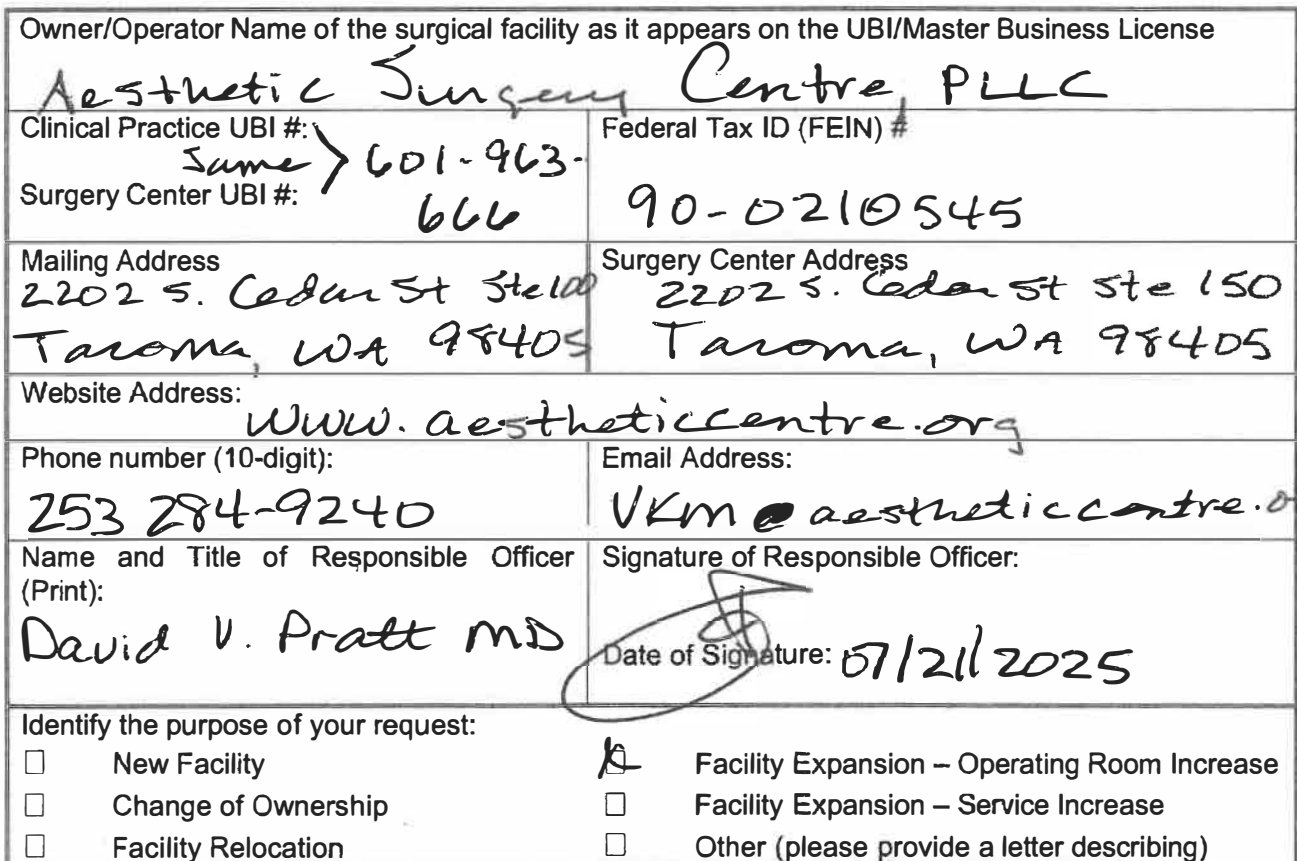 Owner/Operator Name of the surgical facility as it appears on the UBI/Master Business License
Aesthetic Surgery Centre, PLLC
Clinical Practice UBI #:
Same > 601-963-
Surgery Center UBI #:
666
Federal Tax ID (FEIN) #
90-0210545
Mailing Address
2202 S. Cedar St Ste 100
Tacoma, WA 98405
Surgery Center Address
2202 S. Cedar St Ste 150
Tacoma, WA 98405
Website Address:
www.aestheticcentre.org
Phone number (10-digit):
253 284-9240
Email Address:
VKM@aestheticcentre.o
Name and Title of Responsible Officer
(Print):
David V. Pratt MD
Signature of Responsible Officer:
Date of Signature: 07/21/2025
Identify the purpose of your request:
☐ New Facility
☐ Change of Ownership
☐ Facility Relocation
☒ Facility Expansion – Operating Room Increase
☐ Facility Expansion – Service Increase
☐ Other (please provide a letter describing)